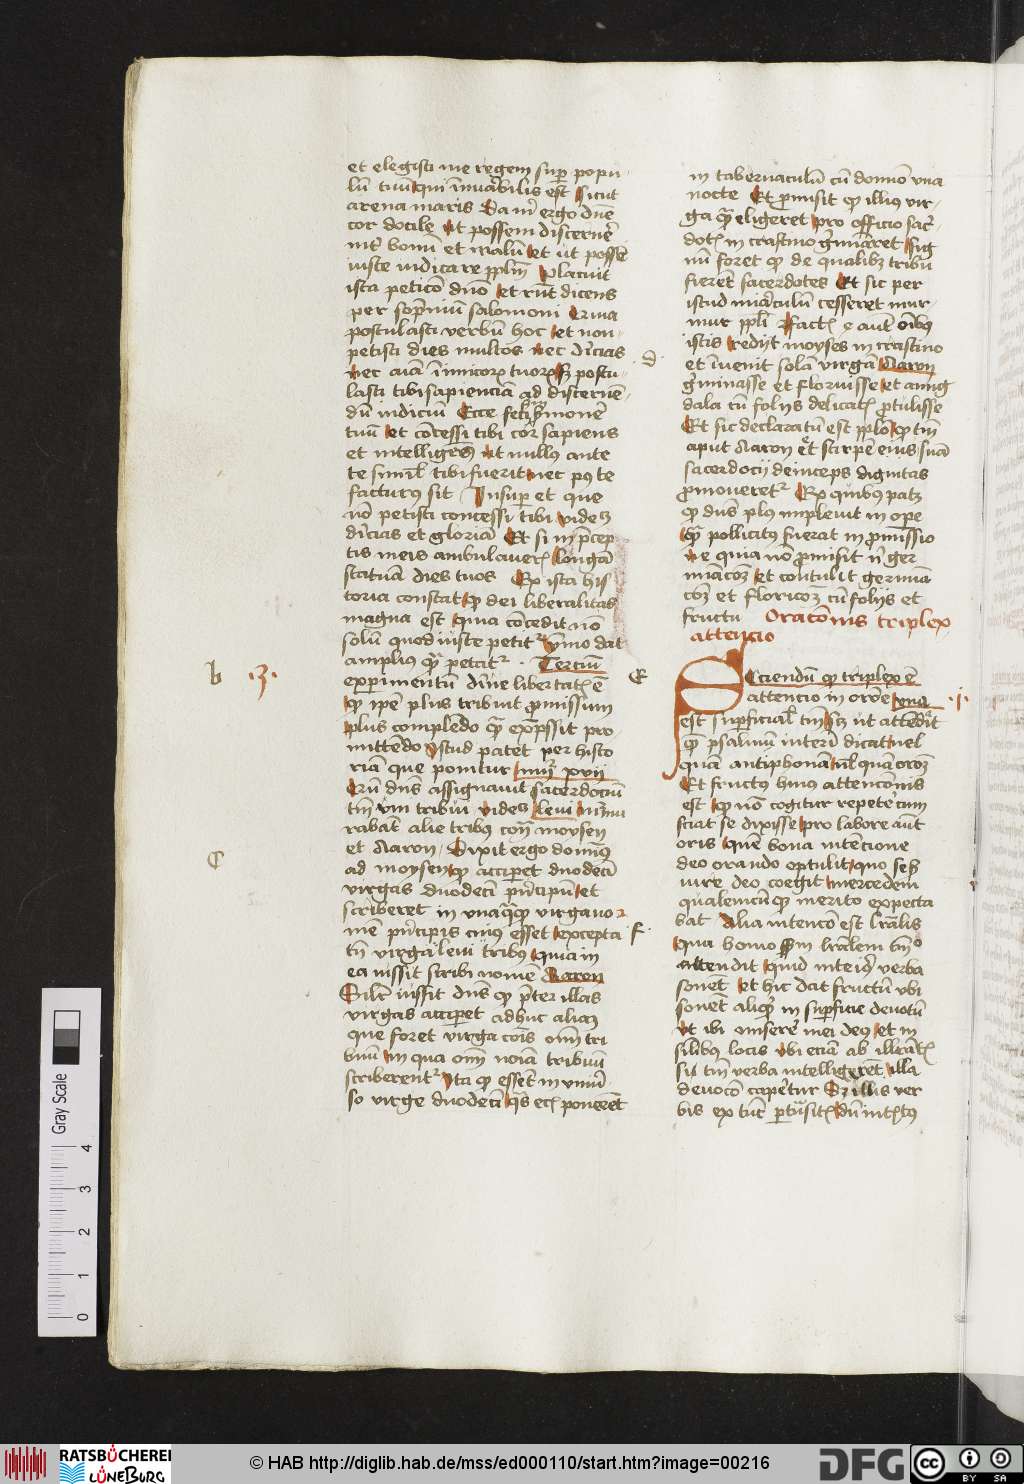 et elegisti me regem sup popu
lū tuū qui inuābilis est sicut
arena maris Da m ergo dne
cor docile ut possem discerne
int bonū et malū et ut possē
iuste iudicare pplm Placuit
ista peticō dno et rn̄t dicens
per sopniū salomoni Quia
postulasti verbū hoc et non
petisti dies multos nec diuicias
nec aīas inimicorꝫ tuorꝫ sꝫ postu
lasti tibi sapienciam ad discernē
dū iudiciū Ecce feci sermonē
tuū et cōcessi tibi cor sapiens
et intelligens ut nullus ante
te simil tibi fuerit nec pꝰ te
facturus sit Insup et que
nō petisti concessi tibi videlꝫ
diuicias et gloriā Et si in pcep
tis meis ambulaueris longā
statuā dies tuos Ex ista his
toria constat qꝫ dei liberalitas
magna est quia cōcedit nō
solū quod iuste petitr ymo dat
amplius quā petatr Terciū
b .3.
experimentū diuine libertatis ē
qꝫ ipē plus tribuit promissum
plus complēdo quā expressit pro
mittēdo ystud patet per histo
riam que ponitur xvij
Cū dns assignauit sacerdociū
tm vni tribui videlꝫ Leui murmu
rabāt alie tribus contra moysen
et Aaron Dixit ergo dominus
C
ad moysen qꝫ acciperet duodeci
virgas duodeci principū et
scriberet in vnaquaqꝫ virga no
mē principis cuius esset excepta
tn virga leui tribus quia in
ea iussit scribi nomē Aaron
Silr iussit dns qꝫ preter illas
virgas acciperet adhuc aliaꝫ
que foret virga cōis oīm tri
buū in qua oīm noīa tribuū
scriberentr Ita qꝫ essent in vniuer
so virge duodeci ponerēt
in tabernaculū cū domno vna
nocte Et promisit qꝫ illius vir
ga quā eligeret pro officio sacer
dotis in crastino germiāret sig
nū foret qꝫ de qualibꝫ tribu
fierent sacerdotes Et sic per
istud miraculū cesseret mur
mur ppli Factis e autē oībus
istis redijt moyses in crastino
d
et inuenit solā virgā Aaron
germinasse et floruisse et amig
dala cū folijs delicatis protulisse
Et sic declaratū est pplo qꝫ tm
aput Aaron et stirpē eius suā
sacerdocij deinceps dignitas
promoueretr Ex quibus patꝫ
qꝫ dns plus impleuit in ope
quā pollicitus fuerat in promissio
ne quia nō promisit nr ger
miacōꝫ et contulit germiā
cōꝫ et floricōꝫ cū folijs et
fructu Oracionis triplex
attencio
E
Sciendū qꝫ triplex ē
attencio in orōe vna .j.
est supficial tm sꝫ ut attēdit
qꝫ psalmū interī dicat uel
quā antiphonā ul quā oroꝫ
Et fructus huius attencōnis
est qꝫ nō cogitur repetere cum
sciat se dixisse pro labore autē
oris quē bona intēcione
deo orando optulit quo seꝫ
iure deo coegit mercedem
qualemcūqꝫ merito expecta
bat Alia intencō est lrālis
f
qua homo sꝫm lrālem tm
attendit quid inteius verba
sonēt et hic dat fructū vbi
sonēt aliqꝫ in supficie deuotū
ut ibi miserere mei deus et in
silibus locis vbi eciam ab illitātis
sit tm verba intelligerēt illa
deuocō capetur Sꝫ illis ver
bis ex tūc ptrāsitis dū intētus
Gray Scale
0 1 2 3 4
RATSBÜCHEREI LÜNEBURG
© HAB http://diglib.hab.de/mss/ed000110/start.htm?image=00216
DFG
cc BY SA